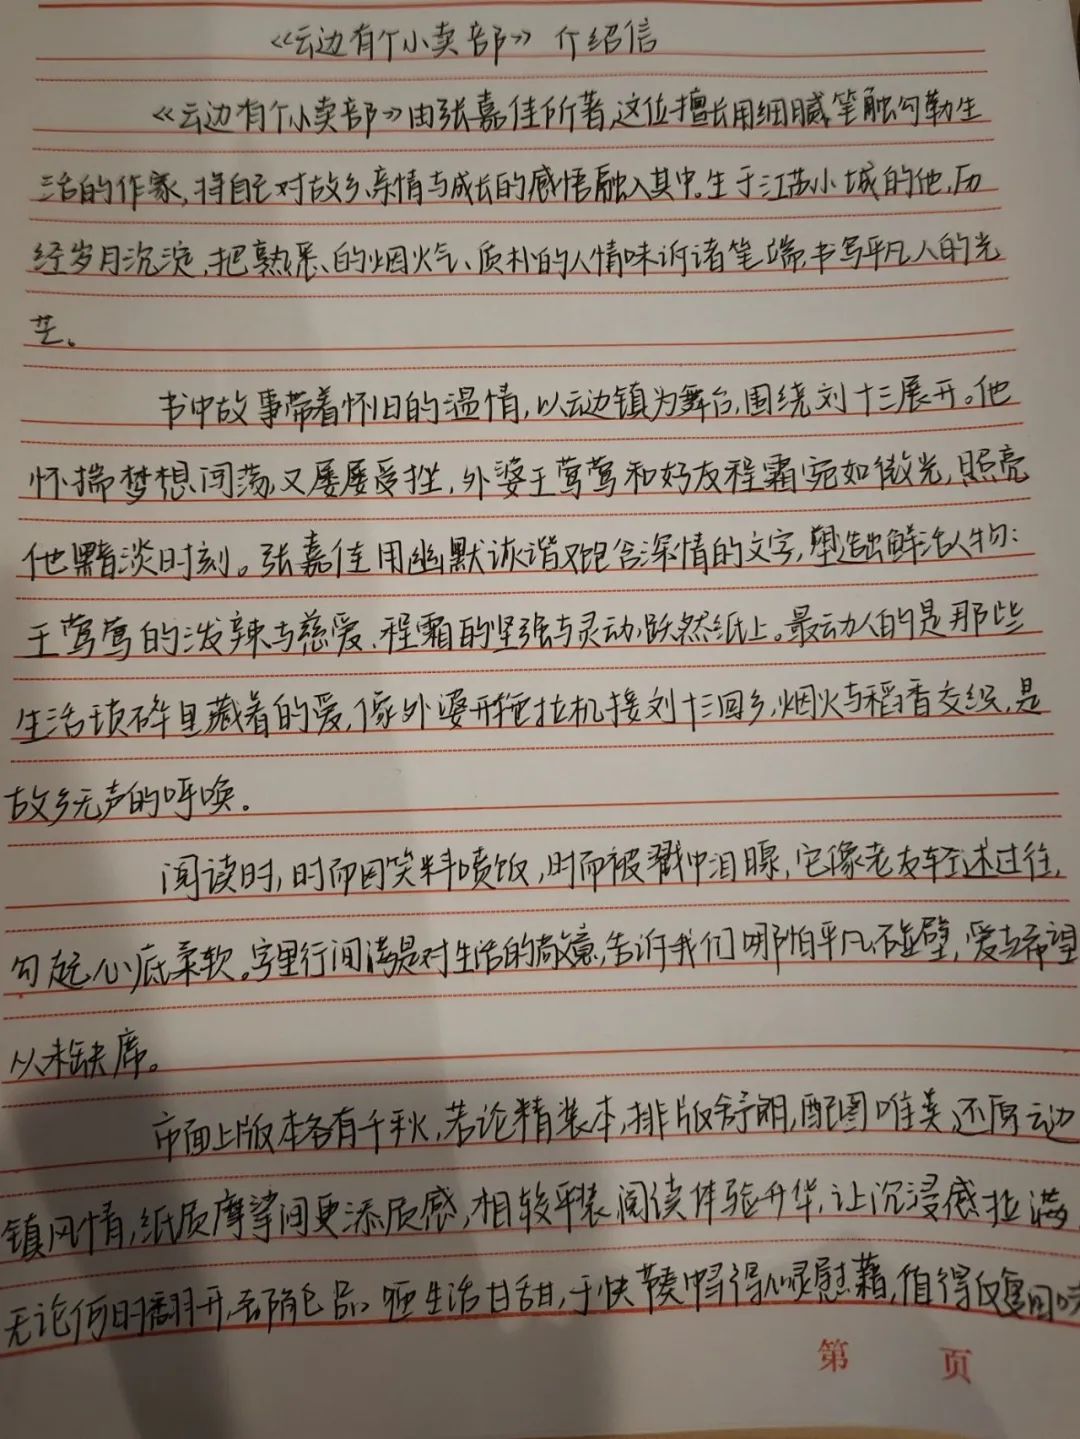 《云边有个小卖部》介绍信
《云边有个小卖部》由张嘉佳所著,这位擅长用细腻笔触勾勒生
活的作家,将自己对故乡、亲情与成长的感悟融入其中。生于江苏小城的他,历
经岁月沉淀,把熟悉的烟火气、质朴的人情味诉诸笔端,书写平凡人的光
芒。
书中故事带着怀旧的温情,以云边镇为舞台,围绕刘十三展开。他
怀揣梦想闯荡,又屡屡受挫,外婆王莺莺和好友程霜宛如微光,照亮
他黯淡时刻。张嘉佳用幽默诙谐又饱含深情的文字,塑造出鲜活人物:
王莺莺的泼辣与慈爱、程霜的坚强与灵动,跃然纸上。最动人的是那些
生活琐碎里藏着的爱,像外婆开拖拉机接刘十三回乡,烟火与稻香交织,是
故乡无声的呼唤。
阅读时,时而因笑料喷饭,时而被戳中泪腺,它像老友轻述过往,
勾起心底柔软。字里行间满是对生活的敬意,告诉我们哪怕平凡碰壁,爱与希望
从未缺席。
市面上版本各有千秋,若论精装本,排版舒朗,配图唯美,还原云边
镇风情,纸质摩挲间更添质感,相较平装,阅读体验升华,让沉浸感拉满,
无论何时翻开,都能品咂生活甘甜,于快节奏中寻得心灵慰藉,值得反复回味
第 页